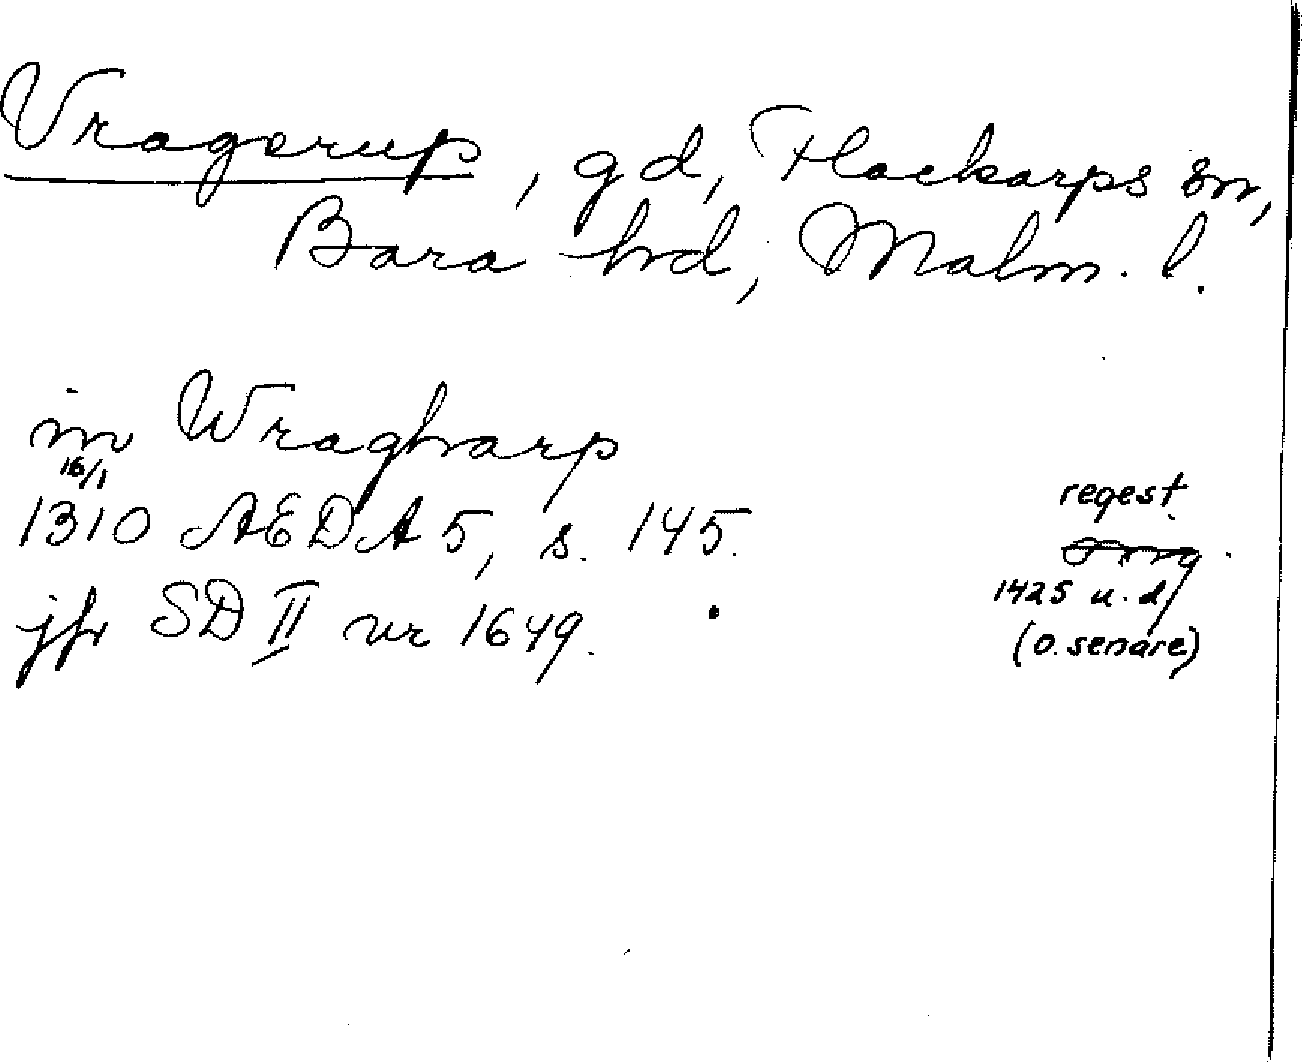 Vragerup, gd, Flackarps sn,
Bara hd, Malm. l.
in Wragharp
16/1
1310 AEDA 5, s. 145.
jfr SD II nr 1649.
regest.
1425 u.d.
(o. senare)